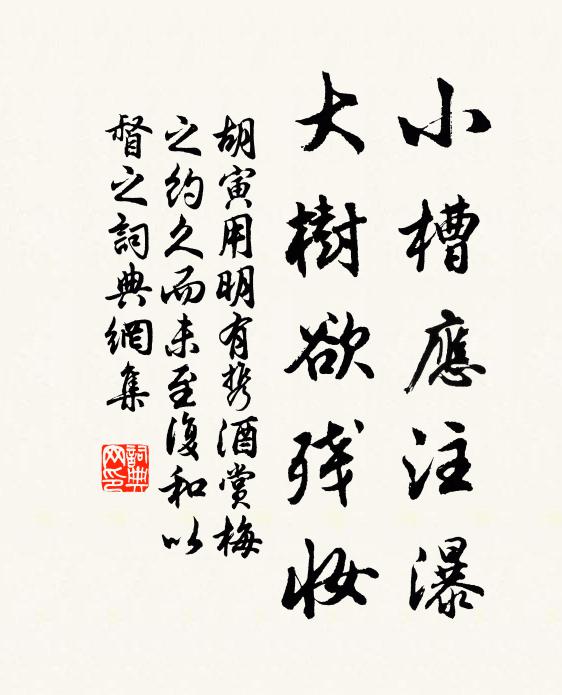 小槽應注瀑
大樹欲残妝
胡寅用明有携酒賞梅
之約久而未至復和以
督之詞典網集
詞典
网印